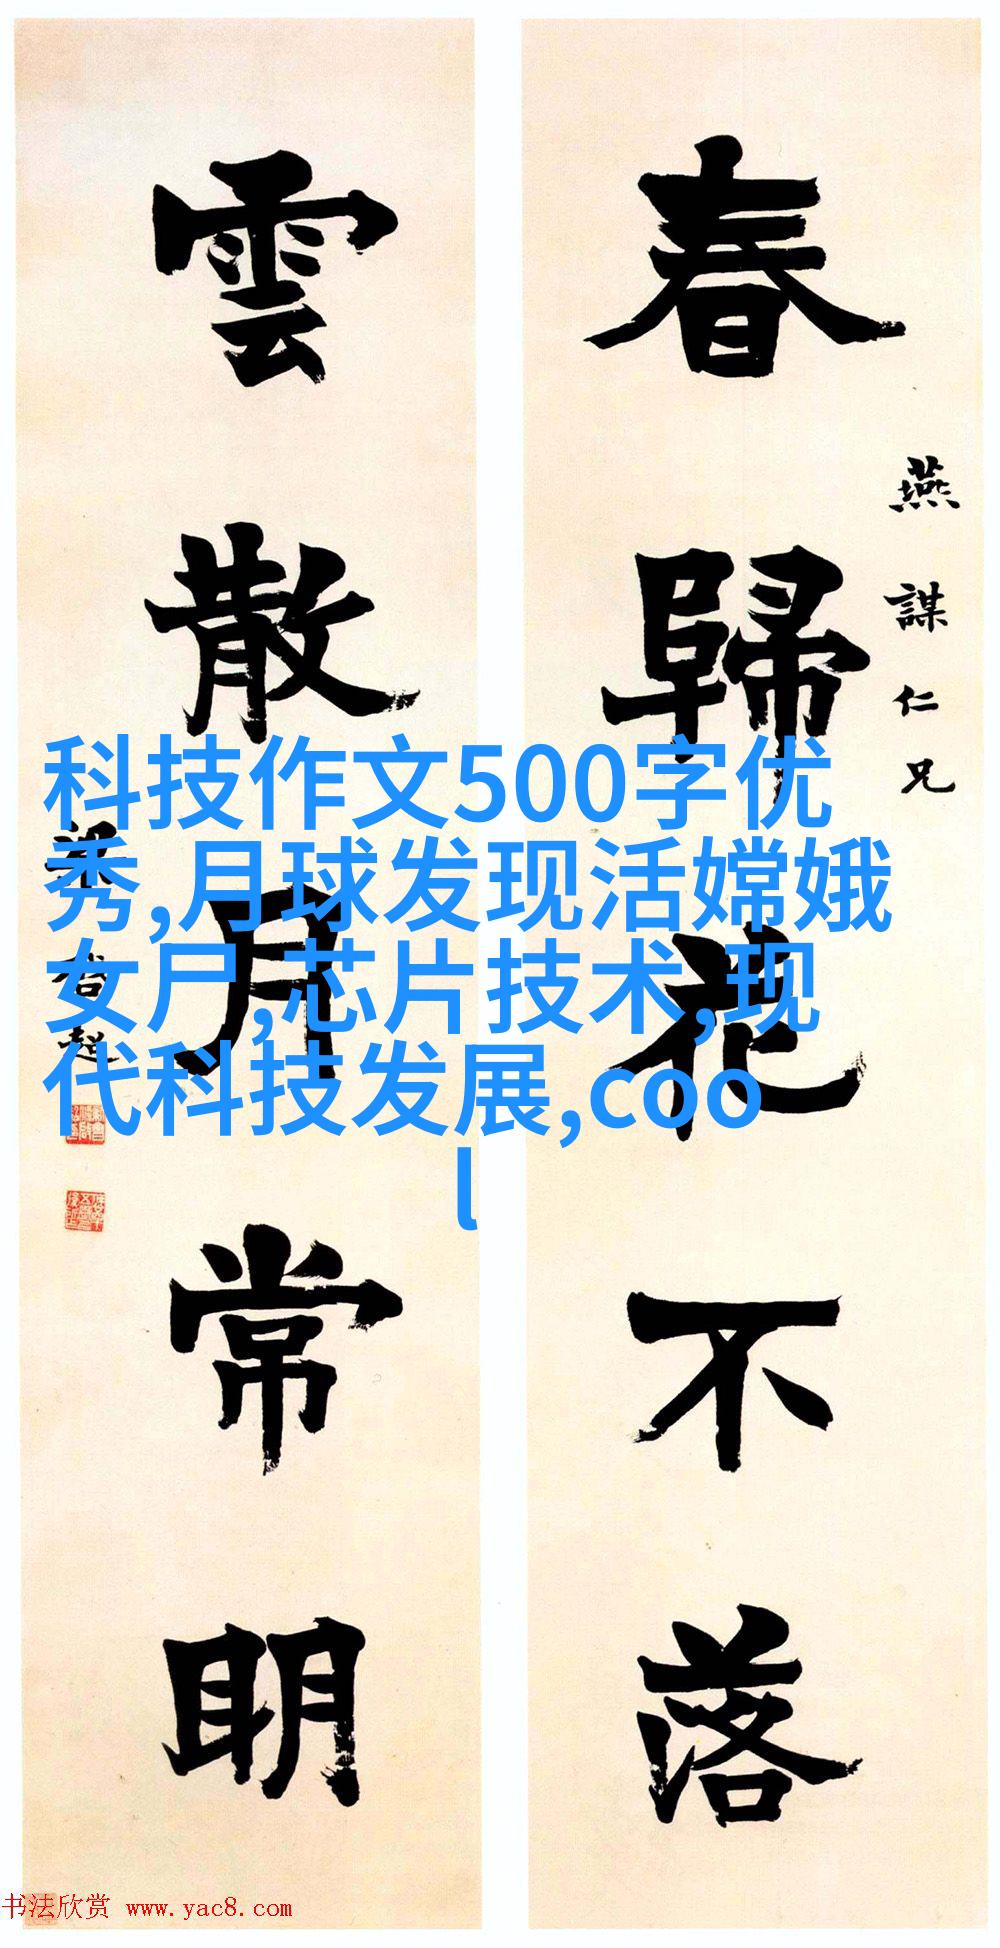 春歸花不落
燕謀仁兄
雲散月常明
梁啓超
科技作文500字优
秀,月球发现活嫦娥
女尸,芯片技术,现
代科技发展,coo
l
书法欣赏 www.yac8.com